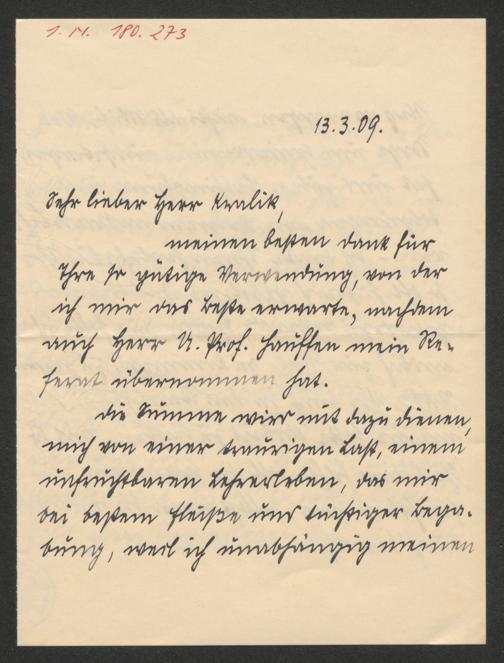 I. N. 180.273
13.3.09.
Sehr lieber Herr Kralik,
meinen besten Dank für
Ihre so gütige Verwendung, von der
ich mir das Beste erwarte, nachdem
auch Herr U. Prof. Hauffen mein Re-
ferat übernommen hat.
Die Summe wird mit dazu dienen,
mich von einer traurigen Last, einem
unfruchtbaren Lehrerleben, das mir
bei bestem Fleiße und tüchtiger Bega-
bung, weil ich unabhängig meinen